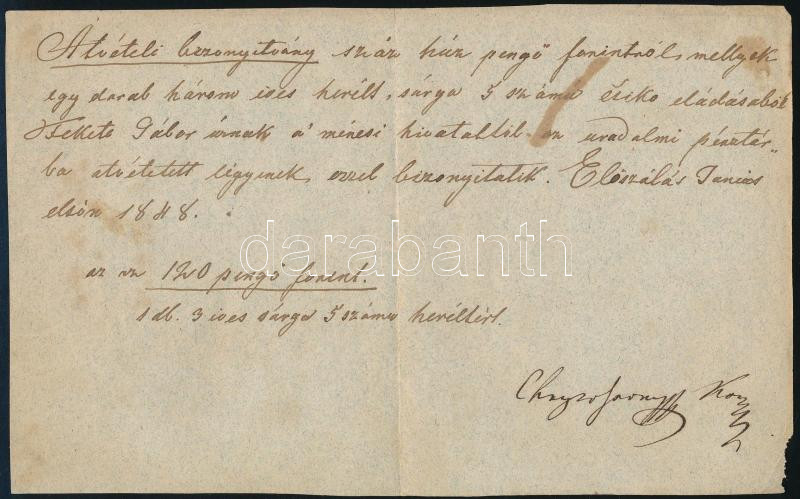 Átvételi bizonyitvány száz húsz pengő forintról, mellyek
egy darab három éves herélt, sárga 5 számu csiko eladásaból
Fekete Gábor úrnak a' ménesi hivataltól az uradalmi pénztár„
ba átvétetett légyenek, ezzel bizonyitatik. Előszálás Junius
elsőn 1848.
az az 120 pengő forint.
1 db. 3 éves sárga 5 számu heréltért.
darabanth